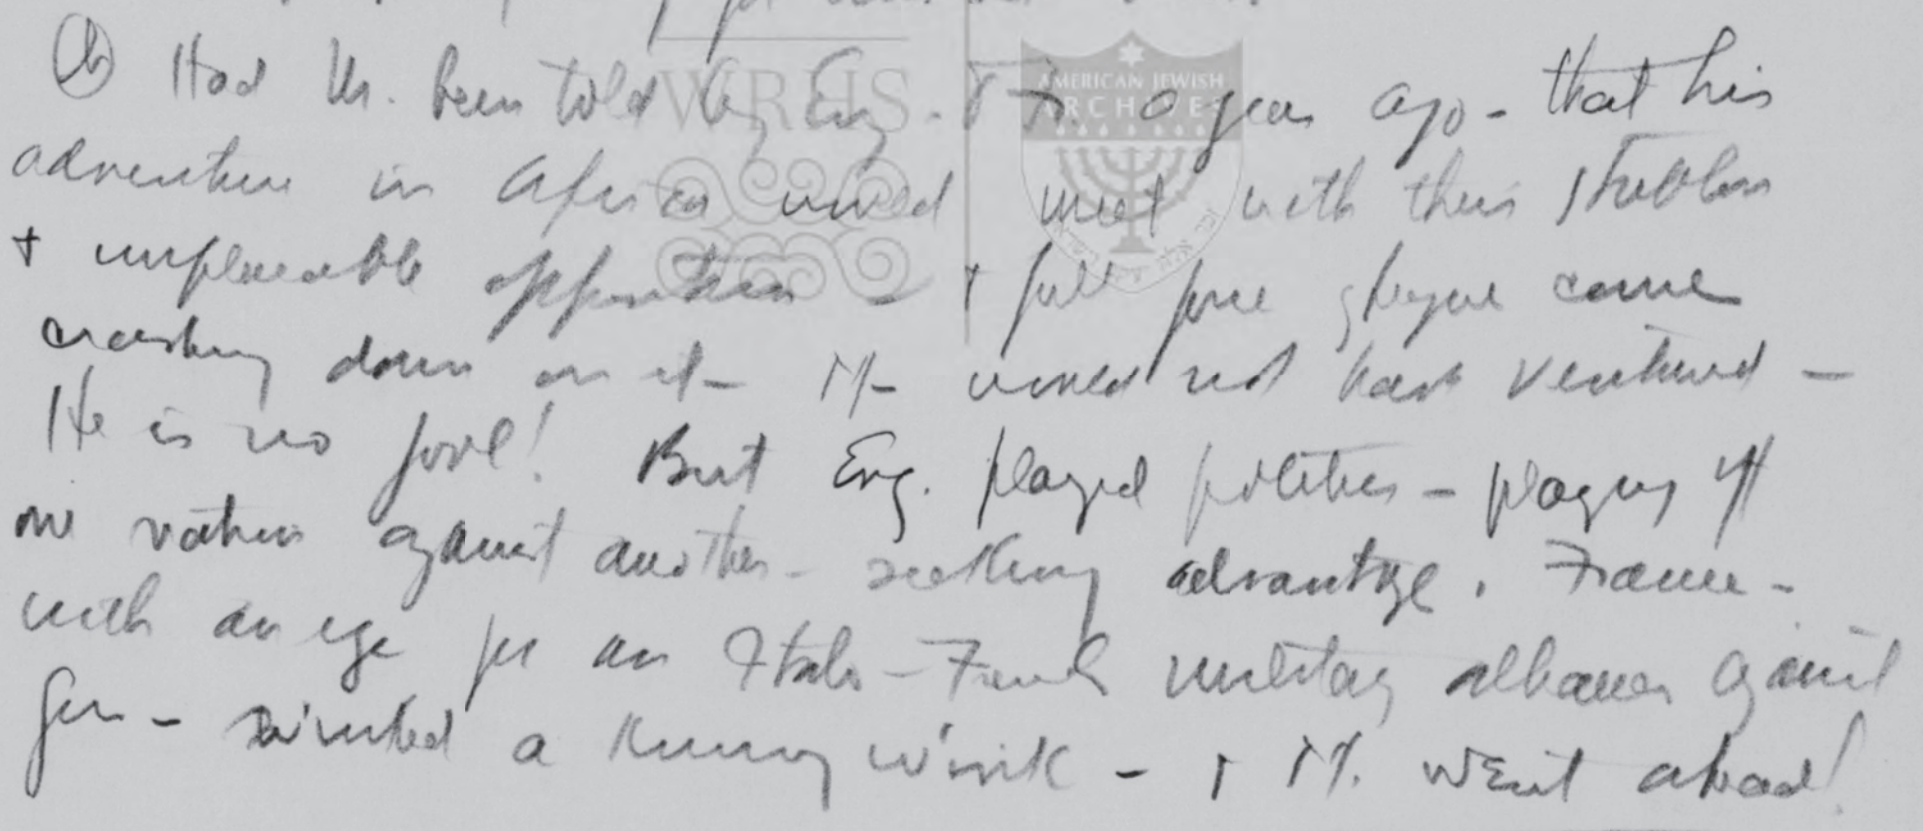 (b) Had M. been told by Eng. + Fr. a year ago - that his
adventure in Africa would meet with their stubborn
+ implacable opposition - + full force of League come
crashing down on it - M - would not have ventured -
He is no fool! But Eng. played politics - playing off
one nation against another - seeking advantage. France -
with an eye for an Italo-French military alliance against
Ger - winked a knowing wink - + M. went ahead!
WRHS
AMERICAN JEWISH
ARCHIVES